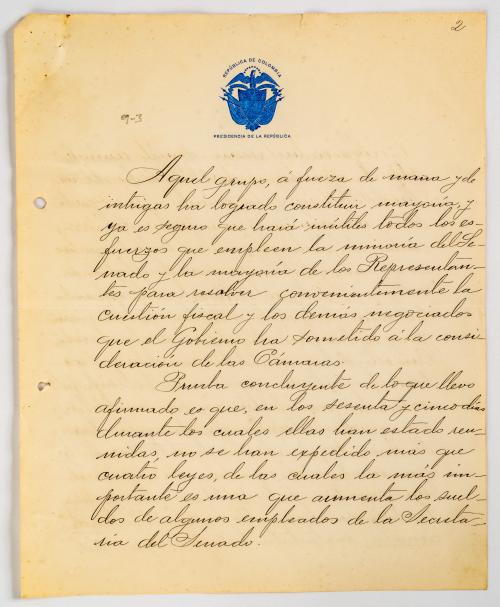 2
REPÚBLICA DE COLOMBIA
9-3
PRESIDENCIA DE LA REPÚBLICA
Aquel grupo, á fueza de maña y de
intrigas ha logrado constituir mayoría, y
ya es seguro que hará inútiles todos los es-
fuerzos que empleen la minoría del Se-
nado y la mayoría de los Representan-
tes para resolver convenientemente la
cuestión fiscal y los demás negociados
que el Gobierno ha sometido á la consi-
deración de las Cámaras.
Prueba concluyente de lo que llevo
afirmado es que, en los sesenta y cinco días
durante los cuales ellas han estado reu-
nidas, no se han expedido mas que
cuatro leyes, de las cuales la más im-
portante es una que aumenta los suel-
dos de algunos empleados de la Secreta-
ría del Senado.